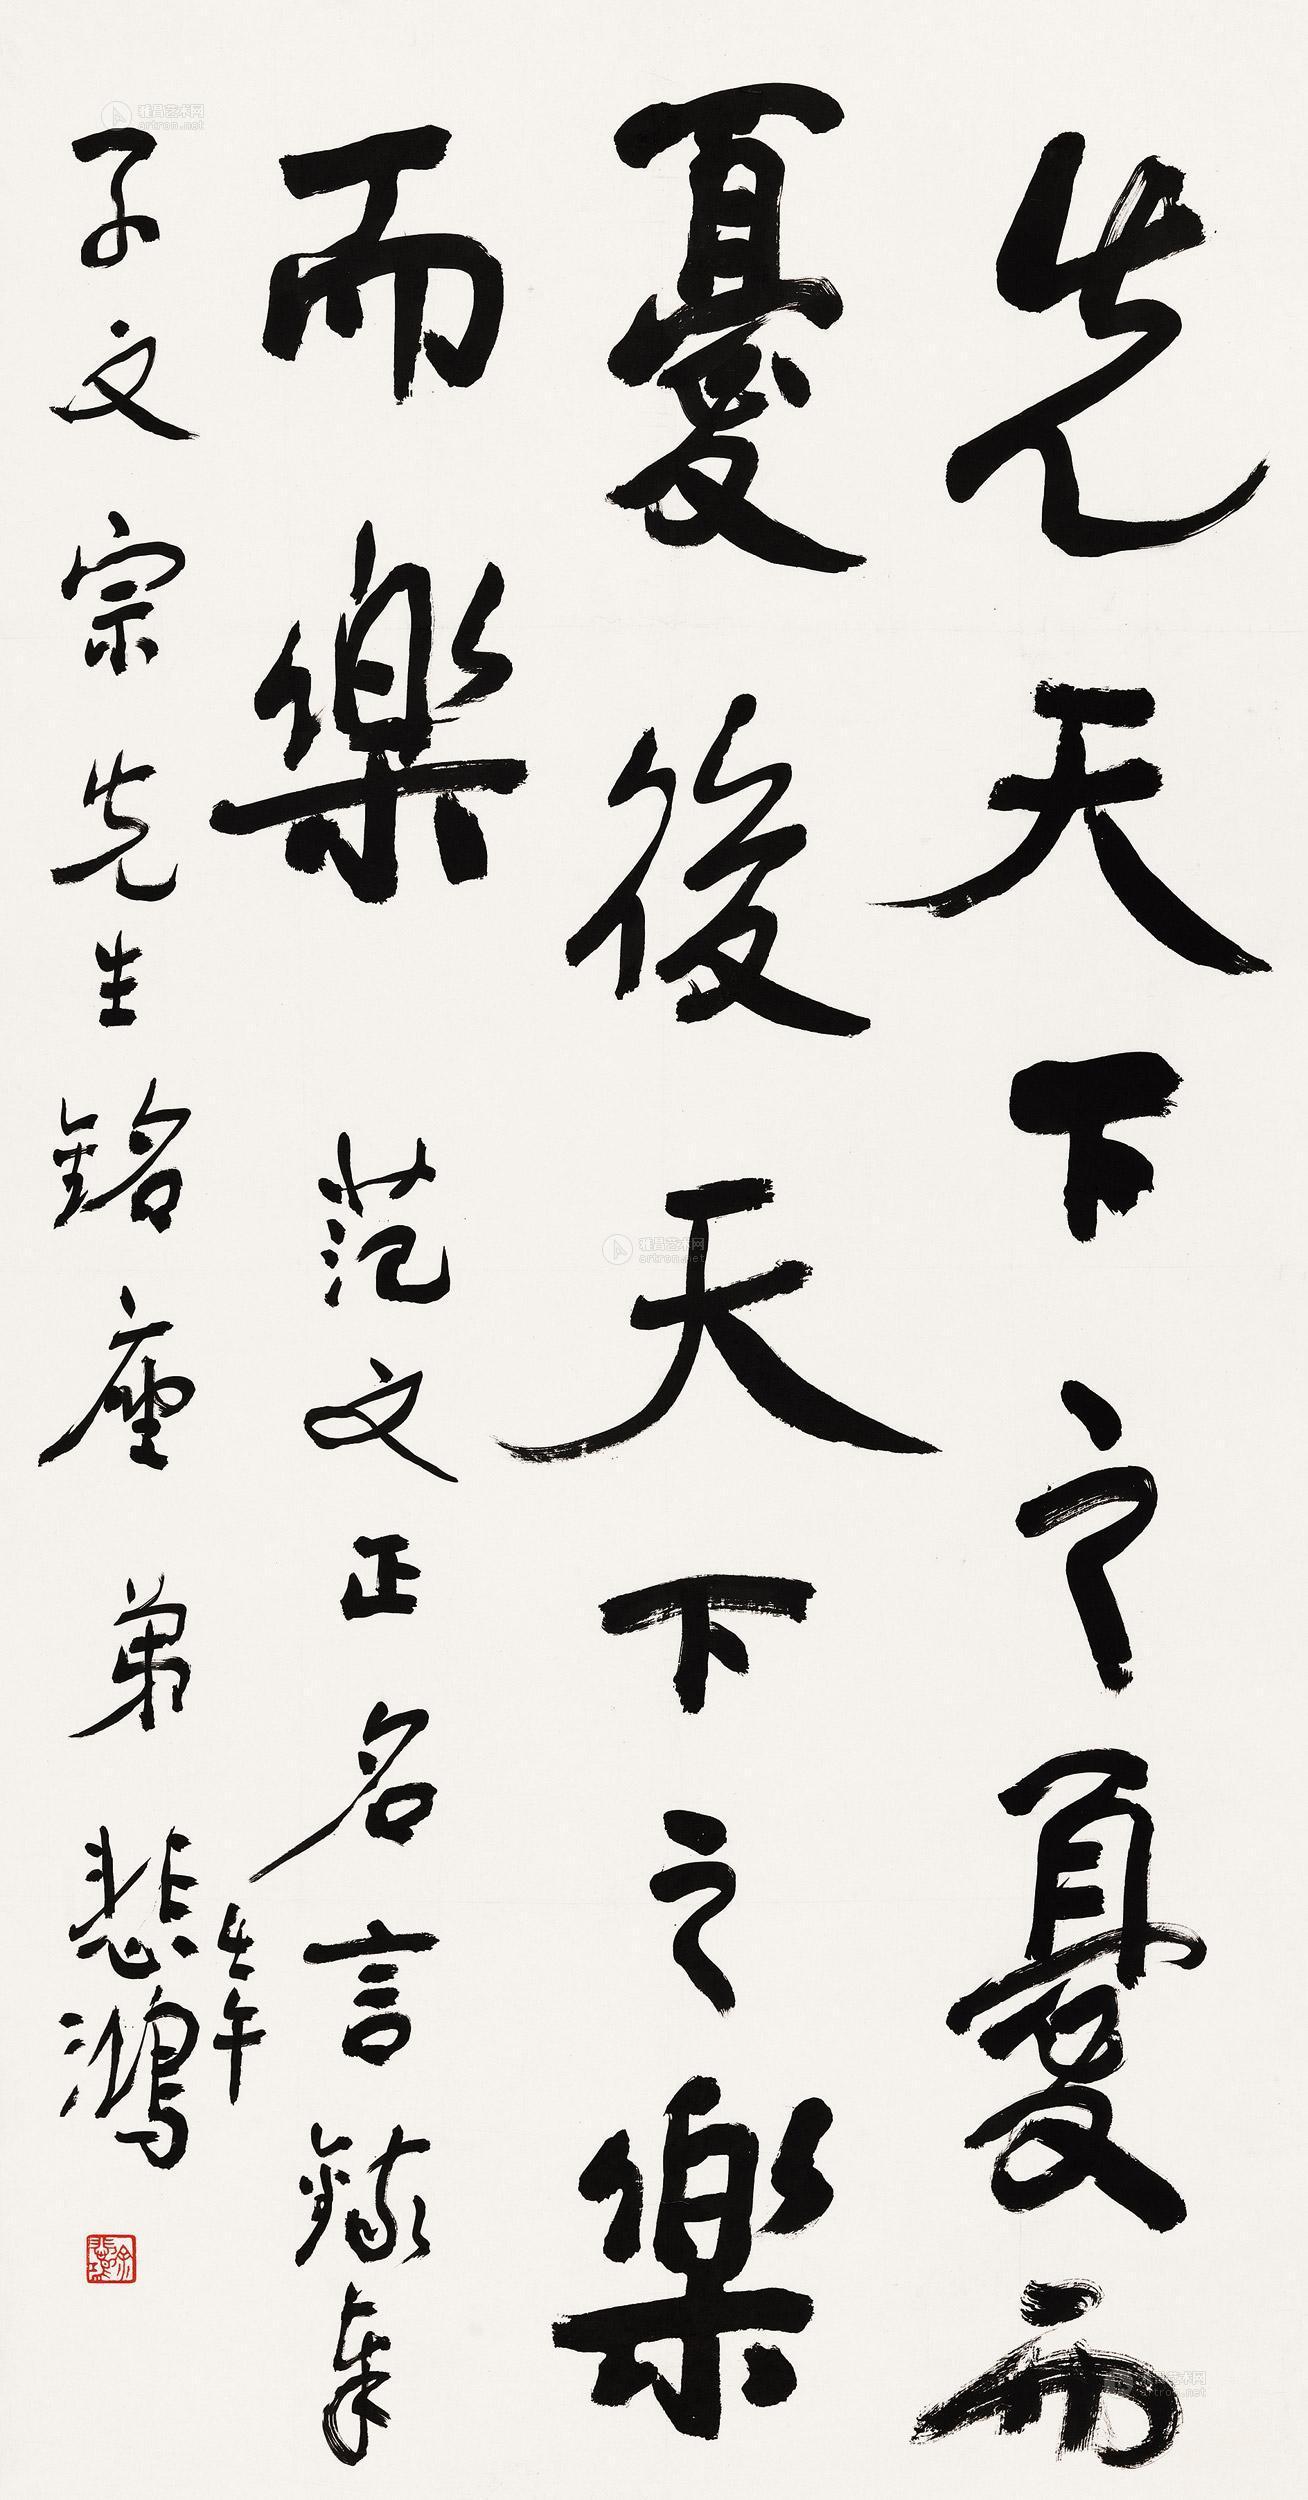 先天下之憂而
憂後天下之樂
而樂 范文正名言錄奉
子文宗先生銘座 弟 悲鴻
壬午
雅昌艺术网
artron.net
雅昌艺术网
artron.net
雅昌艺术网
artron.net